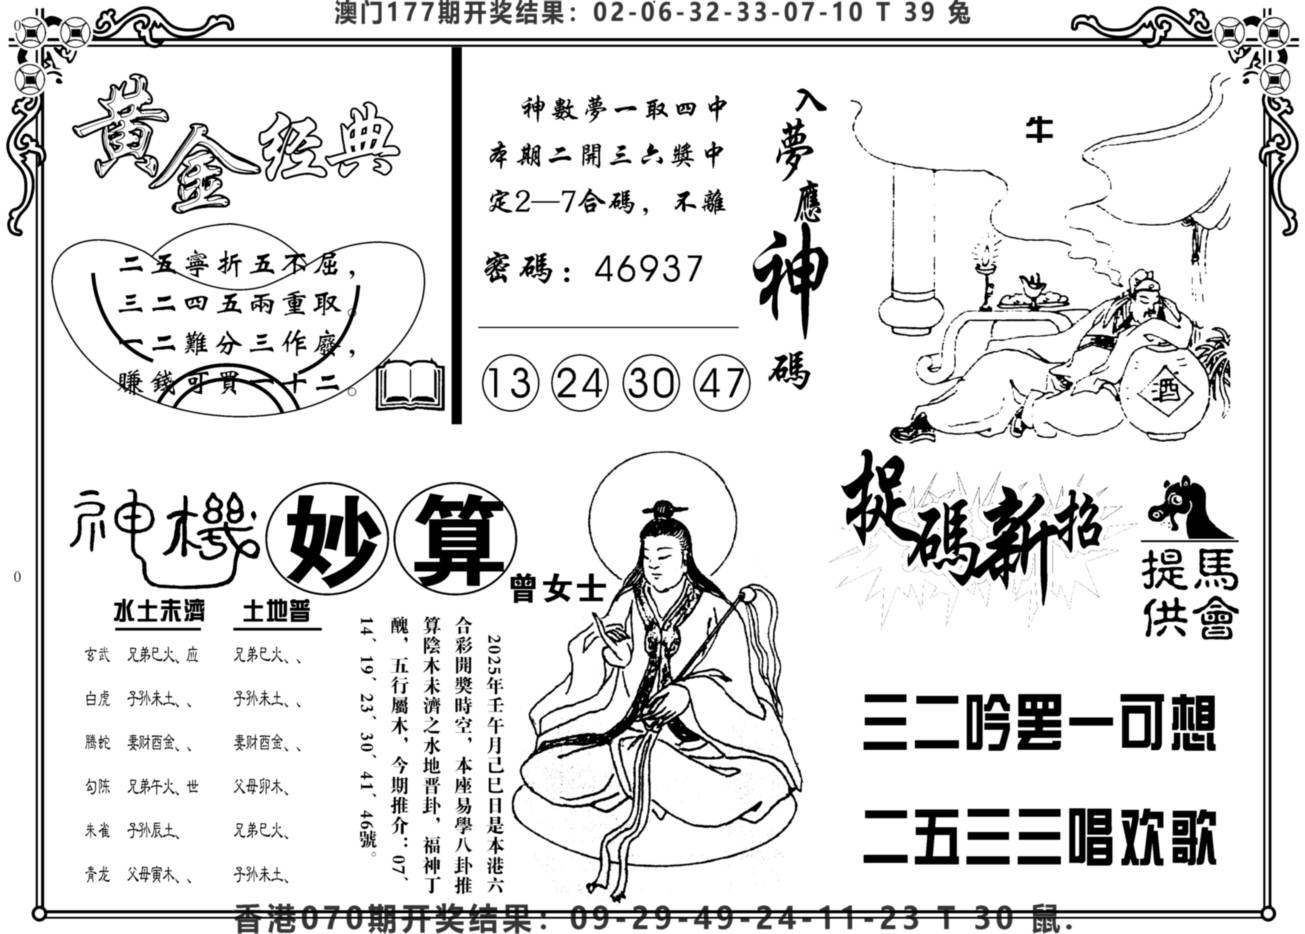 澳门177期开奖结果：02-06-32-33-07-10 T 39 兔
0
黃金經典
二五寧折五不屈，
三二四五兩重取。
一二難分三作廢，
賺錢可買一十二。
神數夢一取四中
本期二開三六獎中
定2—7合碼，不離
密碼：46937
13 24 30 47
入夢應神碼
牛
酒
神機妙算
曾女士
0
水土未濟 土地普
玄武 兄弟巳火、应 兄弟巳火、、
白虎 子孙未土、、 子孙未土、、
腾蛇 妻财酉金、、 妻财酉金、、
勾陈 兄弟午火、世 父母卯木、
朱雀 子孙辰土、 兄弟巳火、
青龙 父母寅木、、 子孙未土、
2025年壬午月己巳日是本港六
合彩開獎時空，本座易學八卦推
算陰木未濟之水地晋卦，福神丁
醜，五行屬木，今期推介：07、
14、19、23、30、41、46號。
捉碼新招
馬會提供
三二吟罢一可想
二五三三唱欢歌
香港070期开奖结果：09-29-49-24-11-23 T 30 鼠.